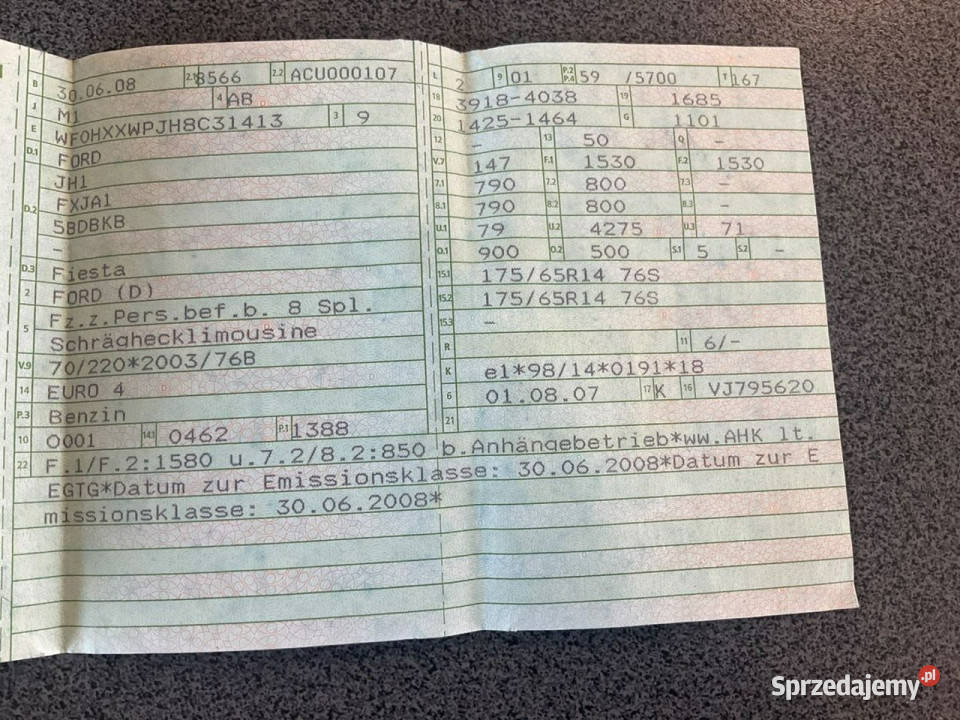 B 30.06.08 2.1 8566 2.2 ACU000107
J M1 4 AB
E WF0HXXWPJH8C31413 3 9
D.1 FORD
JH1
D.2 FXJA1
5BDBKB
-
D.3 Fiesta
2 FORD (D)
5 Fz.z.Pers.bef.b. 8 Spl.
Schräghecklimousine
V.9 70/220*2003/76B
14 EURO 4
P.3 Benzin
10 0001 14.1 0462 P.1 1388
L 2 9 01 P.2 P.4 59 /5700 T 167
18 3918-4038 19 1685
20 1425-1464 G 1101
12 - 13 50 Q -
V.7 147 F.1 1530 F.2 1530
7.1 790 7.2 800 7.3 -
8.1 790 8.2 800 8.3 -
U.1 79 U.2 4275 U.3 71
O.1 900 O.2 500 S.1 5 S.2 -
15.1 175/65R14 76S
15.2 175/65R14 76S
15.3 -
R 11 6/-
K e1*98/14*0191*18
6 01.08.07 17 K 16 VJ795620
21
22 F.1/F.2:1580 u.7.2/8.2:850 b.Anhängebetrieb*ww.AHK lt.
EGTG*Datum zur Emissionsklasse: 30.06.2008*Datum zur E
missionsklasse: 30.06.2008*
Sprzedajemy.pl